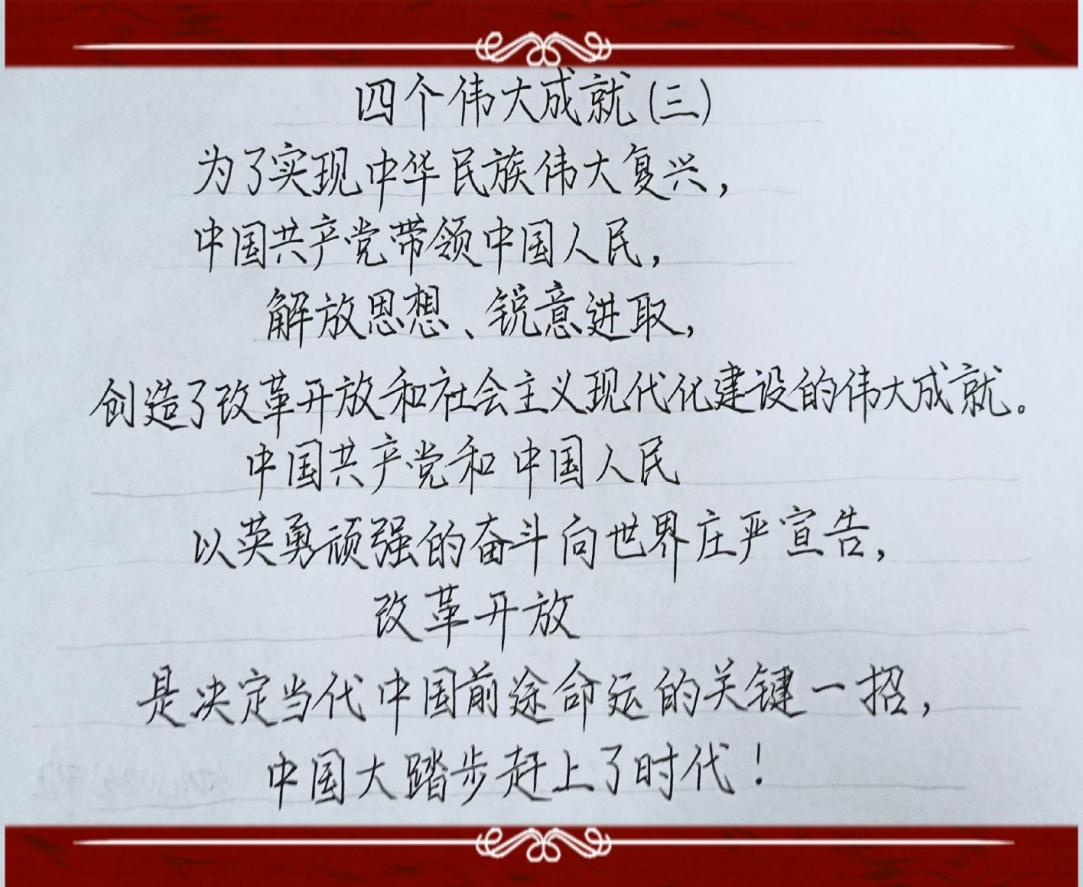 四个伟大成就(三)
为了实现中华民族伟大复兴，
中国共产党带领中国人民，
解放思想、锐意进取，
创造了改革开放和社会主义现代化建设的伟大成就。
中国共产党和中国人民
以英勇顽强的奋斗向世界庄严宣告，
改革开放
是决定当代中国前途命运的关键一招，
中国大踏步赶上了时代！